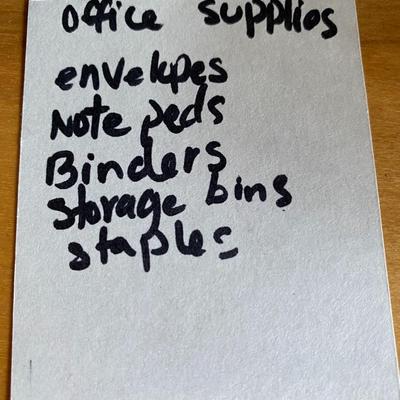 office supplios
envelopes
Note peds
Binders
Storage bins
staples